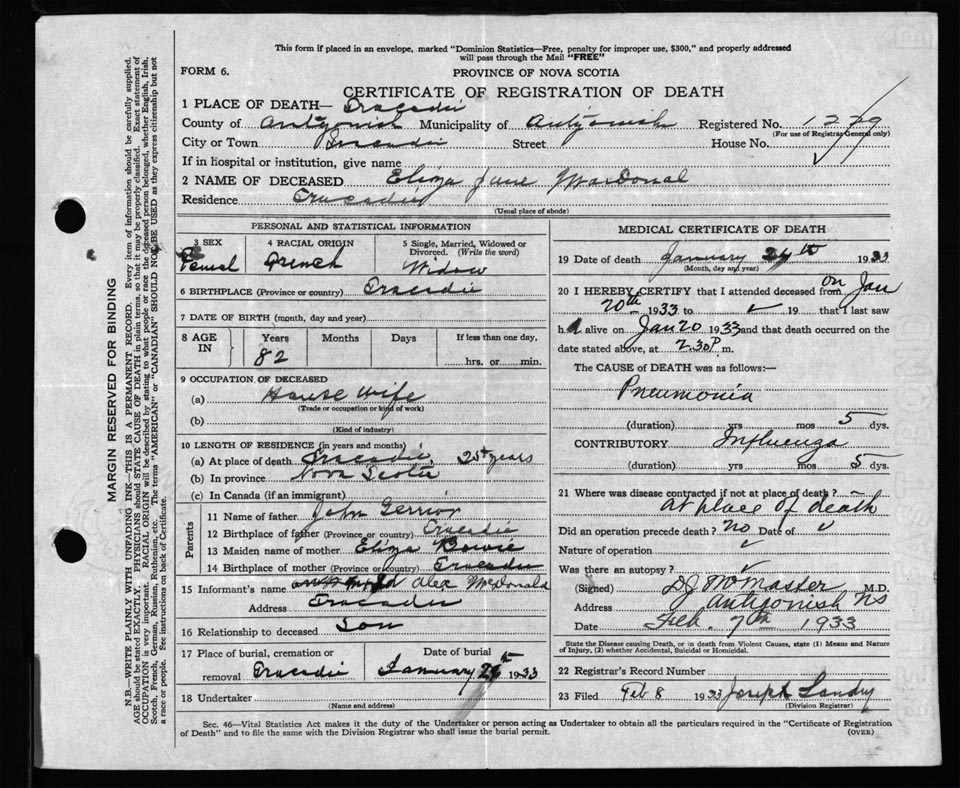 This form if placed in an envelope, marked "Dominion Statistics—Free, penalty for improper use, $300," and properly addressed
will pass through the Mail "FREE"
FORM 6.
PROVINCE OF NOVA SCOTIA
CERTIFICATE OF REGISTRATION OF DEATH
1 PLACE OF DEATH— Tracadie
County of Antigonish Municipality of Antigonish Registered No. 1279
(For use of Registrar General only)
City or Town Tracadie Street House No.
If in hospital or institution, give name
2 NAME OF DECEASED Eliza Jane MacDonal
Residence Tracadie
(Usual place of abode)
PERSONAL AND STATISTICAL INFORMATION
3 SEX 4 RACIAL ORIGIN 5 Single, Married, Widowed or
Divorced. (Write the word)
Femal French Widow
6 BIRTHPLACE (Province or country) Tracadie
7 DATE OF BIRTH (month, day and year)
8 AGE IN Years Months Days If less than one day,
82 hrs. or min.
9 OCCUPATION OF DECEASED
(a) House Wife
(Trade or occupation or kind of work)
(b)
(Kind of industry)
10 LENGTH OF RESIDENCE (in years and months)
(a) At place of death Tracadie years
(b) In province Nova Scotia
(c) In Canada (if an immigrant)
Parents
11 Name of father John Gerrior
12 Birthplace of father (Province or country) Tracadie
13 Maiden name of mother Eliza Bowie
14 Birthplace of mother (Province or country) Tracadie
15 Informant's name Alex McDonald
Address Tracadie
16 Relationship to deceased Son
17 Place of burial, cremation or Date of burial
removal Tracadie January 1933
18 Undertaker
(Name and address)
MEDICAL CERTIFICATE OF DEATH
19 Date of death January 24th 1933
(Month, day and year)
20 I HEREBY CERTIFY that I attended deceased from on Jan
20th 1933 to 19 that I last saw
h alive on Jan 20 1933 and that death occurred on the
date stated above, at 2.30 P. m.
The CAUSE of DEATH was as follows:—
Pneumonia
(duration) yrs mos 5 dys.
CONTRIBUTORY Influenza
(duration) yrs mos 5 dys.
21 Where was disease contracted if not at place of death?
At place of death
Did an operation precede death? no Date of
Nature of operation
Was there an autopsy?
(Signed) DJ McMaster M.D.
Address Antigonish NS
Date Feb. 7th 1933
State the Disease causing Death, or in death from Violent Causes, state (1) Means and Nature
of Injury, (2) whether Accidental, Suicidal or Homicidal.
22 Registrar's Record Number
23 Filed Feb 8 1933 Joseph Landry
(Division Registrar)
Sec. 46—Vital Statistics Act makes it the duty of the Undertaker or person acting as Undertaker to obtain all the particulars required in the "Certificate of Registration
of Death" and to file the same with the Division Registrar who shall issue the burial permit.
(OVER)
MARGIN RESERVED FOR BINDING
N.B.—WRITE PLAINLY WITH UNFADING INK—THIS IS A PERMANENT RECORD. Every item of information should be carefully supplied.
AGE should be stated EXACTLY. PHYSICIANS should STATE CAUSE OF DEATH in plain terms, so that it may be properly classified. Exact statement of
OCCUPATION is very important. RACIAL ORIGIN will be described by stating to what people or race the deceased person belonged, whether English, Irish,
Scotch, French, German, Russian, Ruthenian, etc. The terms "AMERICAN" or "CANADIAN" SHOULD NOT BE USED as they express citizenship but not
a race or people. See instructions on back of Certificate.